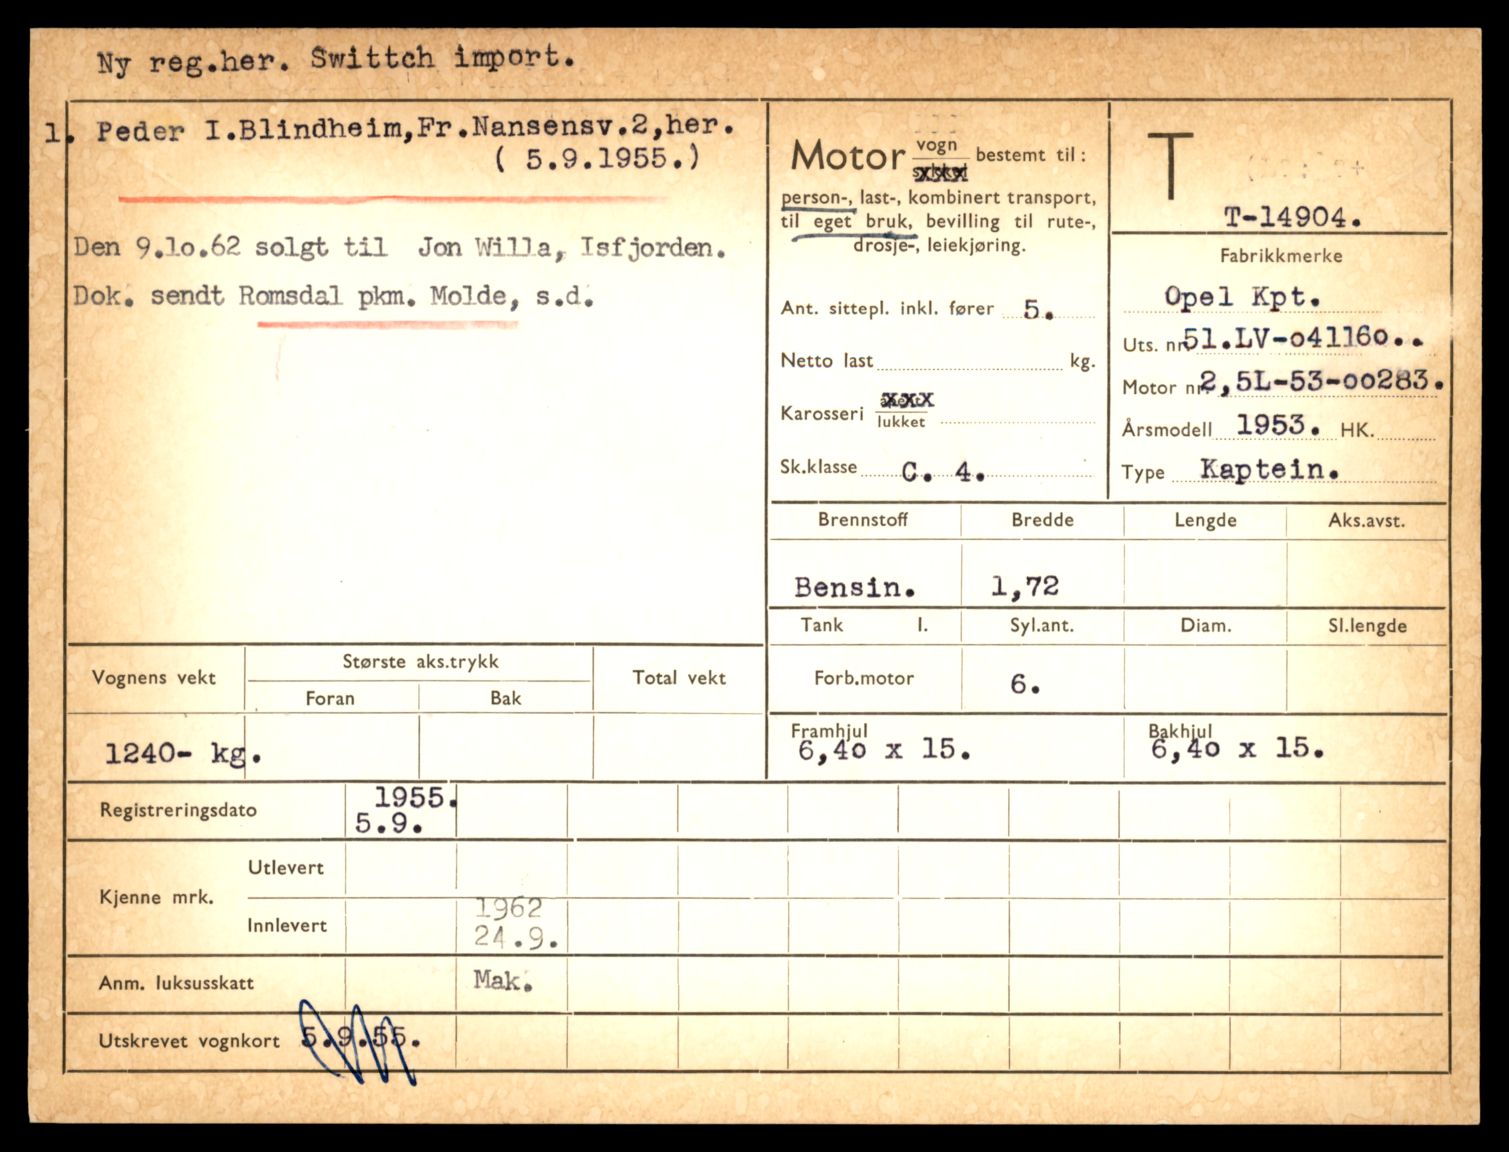 Ny reg.her. Swittch import.
1. Peder I.Blindheim,Fr.Nansensv.2,her.
( 5.9.1955.)
Den 9.1o.62 solgt til Jon Willa, Isfjorden.
Dok. sendt Romsdal pkm. Molde, s.d.
Motor vogn bestemt til:
xxx
person-, last-, kombinert transport,
til eget bruk, bevilling til rute-,
drosje-, leiekjøring.
Ant. sittepl. inkl. fører 5.
Netto last kg.
Karosseri xxx
lukket
Sk.klasse C. 4.
T
T-14904.
Fabrikkmerke
Opel Kpt.
Uts. nr. 51.LV-o4116o..
Motor nr. 2,5L-53-oo283.
Årsmodell 1953. HK.
Type Kaptein.
Brennstoff Bredde Lengde Aks.avst.
Bensin. 1,72
Tank l. Syl.ant. Diam. Sl.lengde
Forb.motor 6.
Framhjul Bakhjul
6,4o x 15. 6,4o x 15.
Vognens vekt Største aks.trykk Total vekt
Foran Bak
1240- kg.
Registreringsdato 1955.
5.9.
Kjenne mrk. Utlevert
Innlevert 1962
24.9.
Anm. luksusskatt Mak.
Utskrevet vognkort 5.9.55.